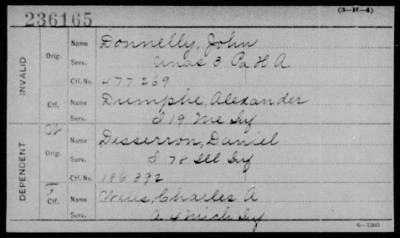 (3-H-4)
236165
INVALID
Orig. Name Donnelly, John
Serv. Unas. 3 Pa H A
Ctf. No. 477269
Ctf. Name Dumphe, Alexander
Serv. I 19 Me Inf
DEPENDENT
Orig. Name Desserron, Daniel
Serv. I 78 Ill Inf
Ctf. No. 186392
Ctf. Name Wells, Charles A
Serv. A 4 Mich Inf